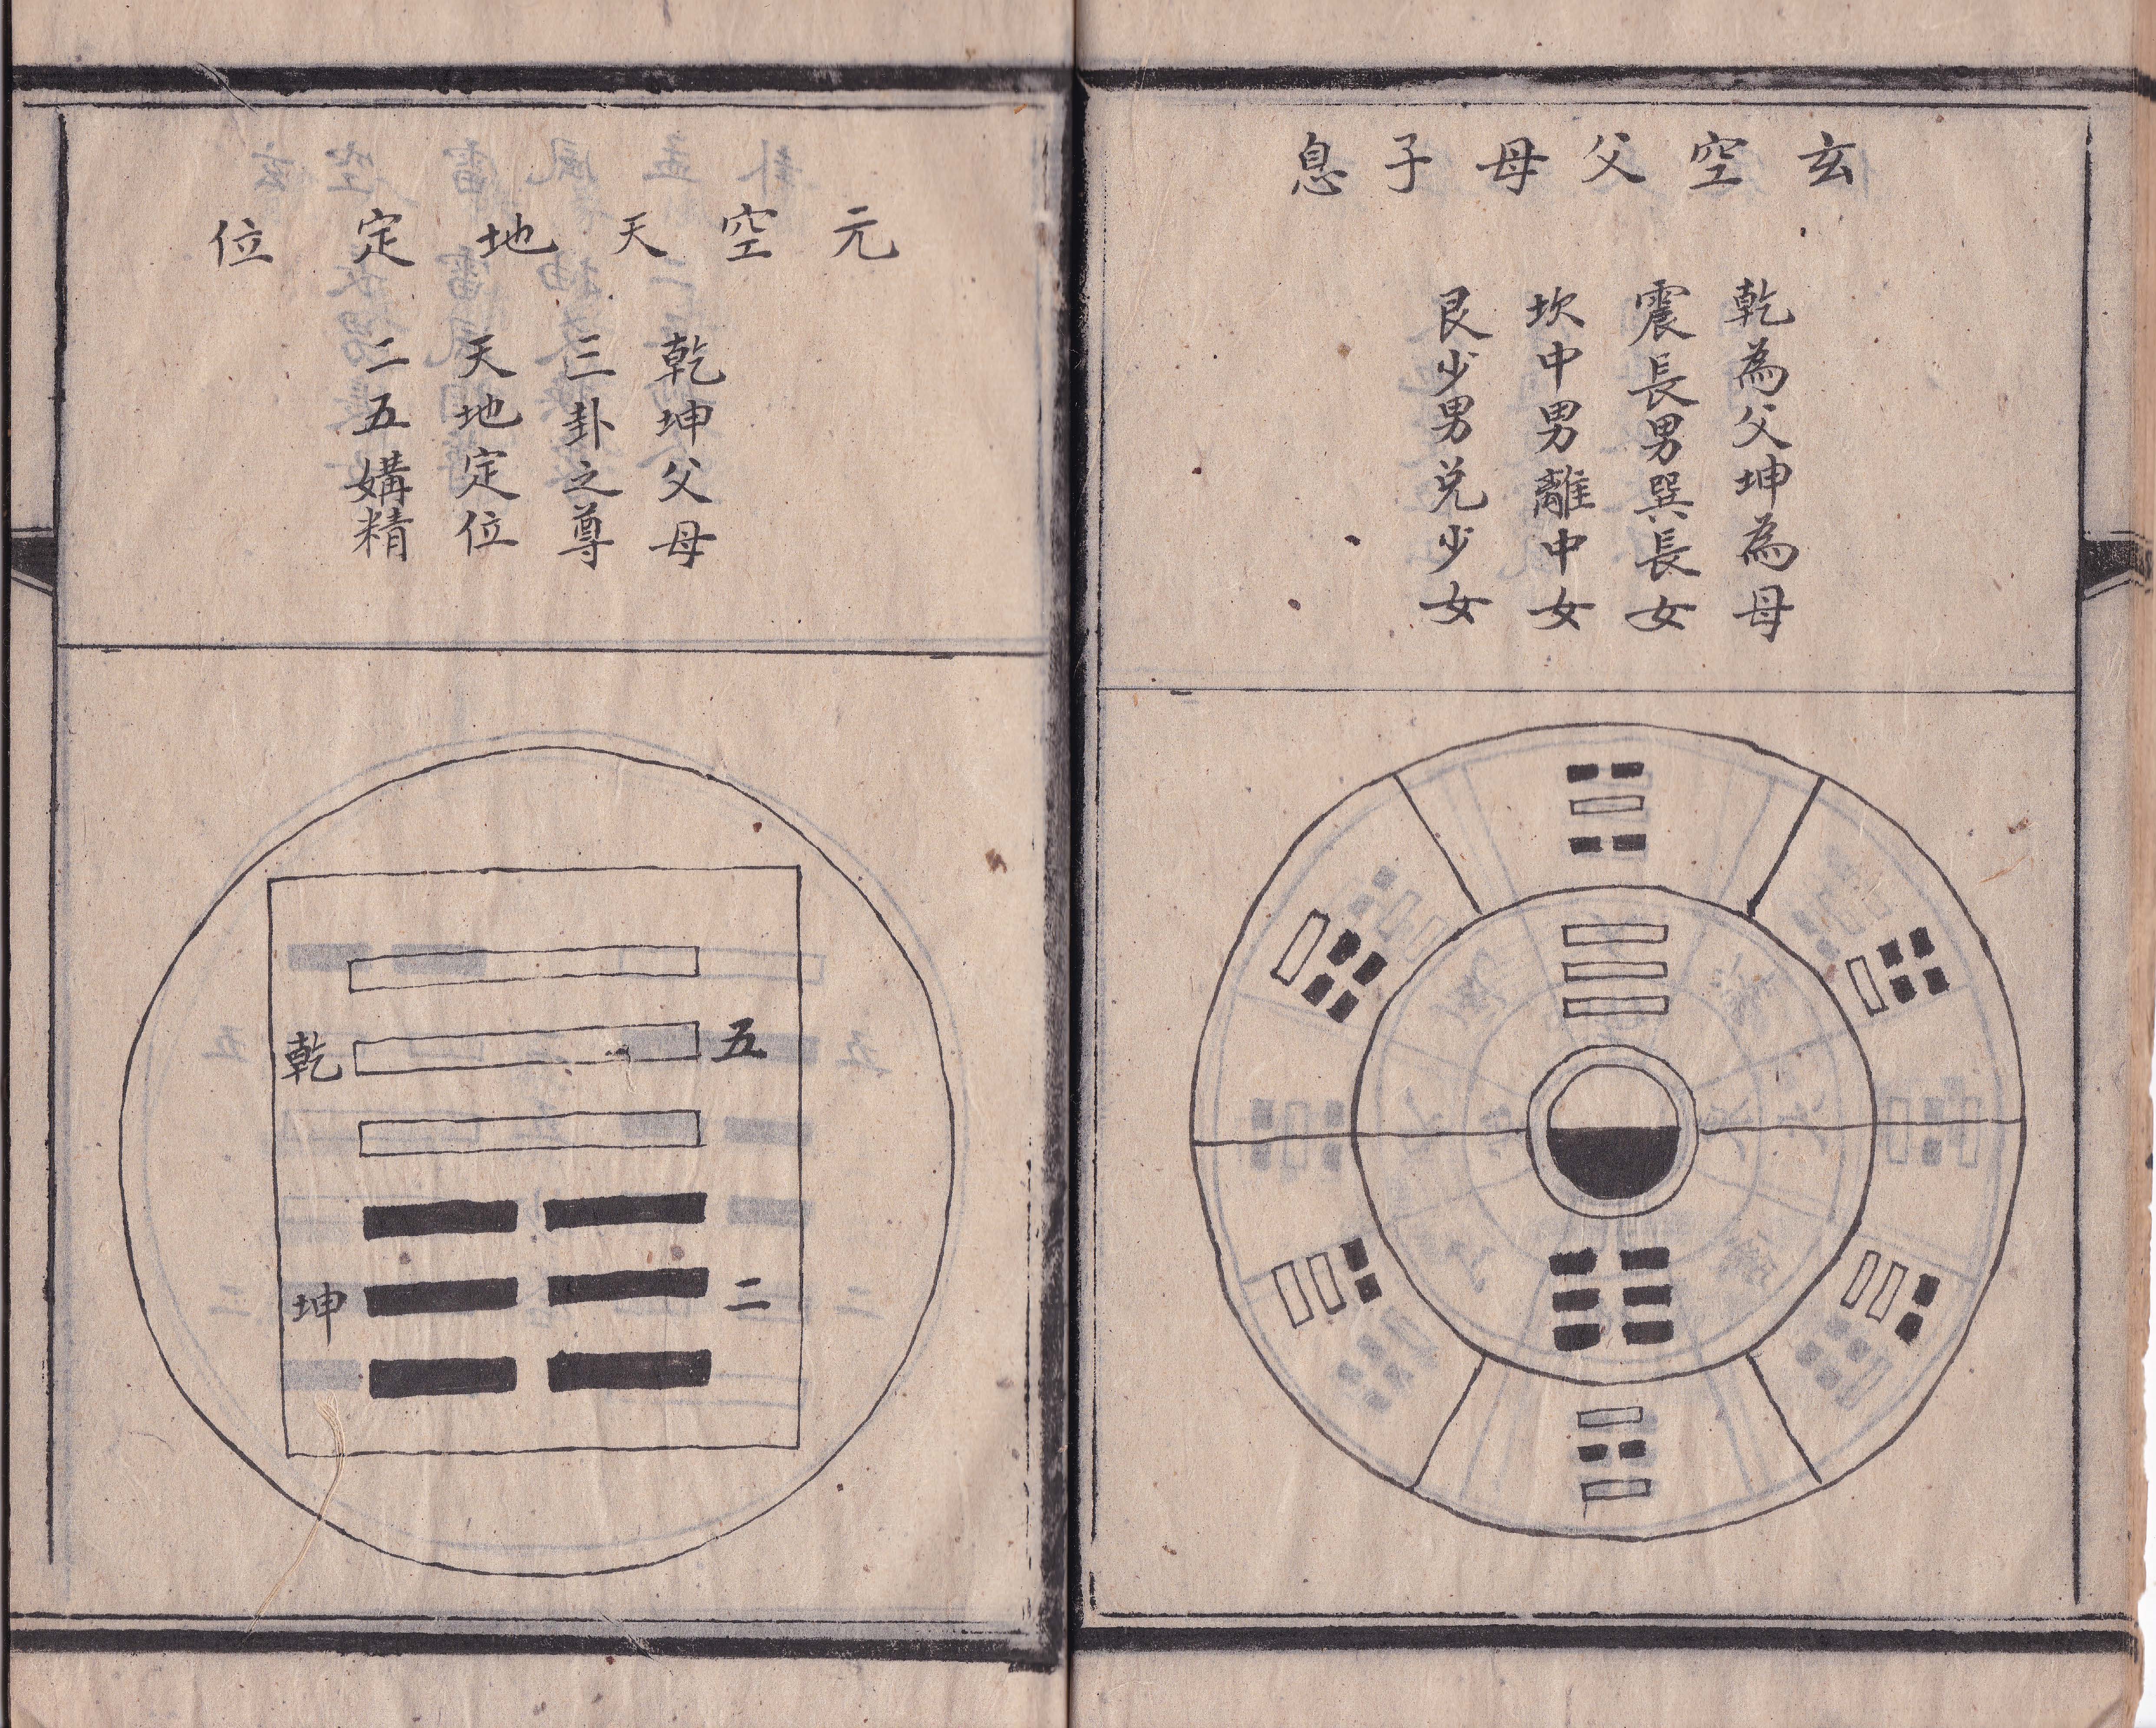 玄空父母子息
乾為父坤為母
震長男巽長女
坎中男離中女
艮少男兌少女
元空天地定位
乾坤父母
三卦之尊
天地定位
二五媾精
乾 五
坤 二